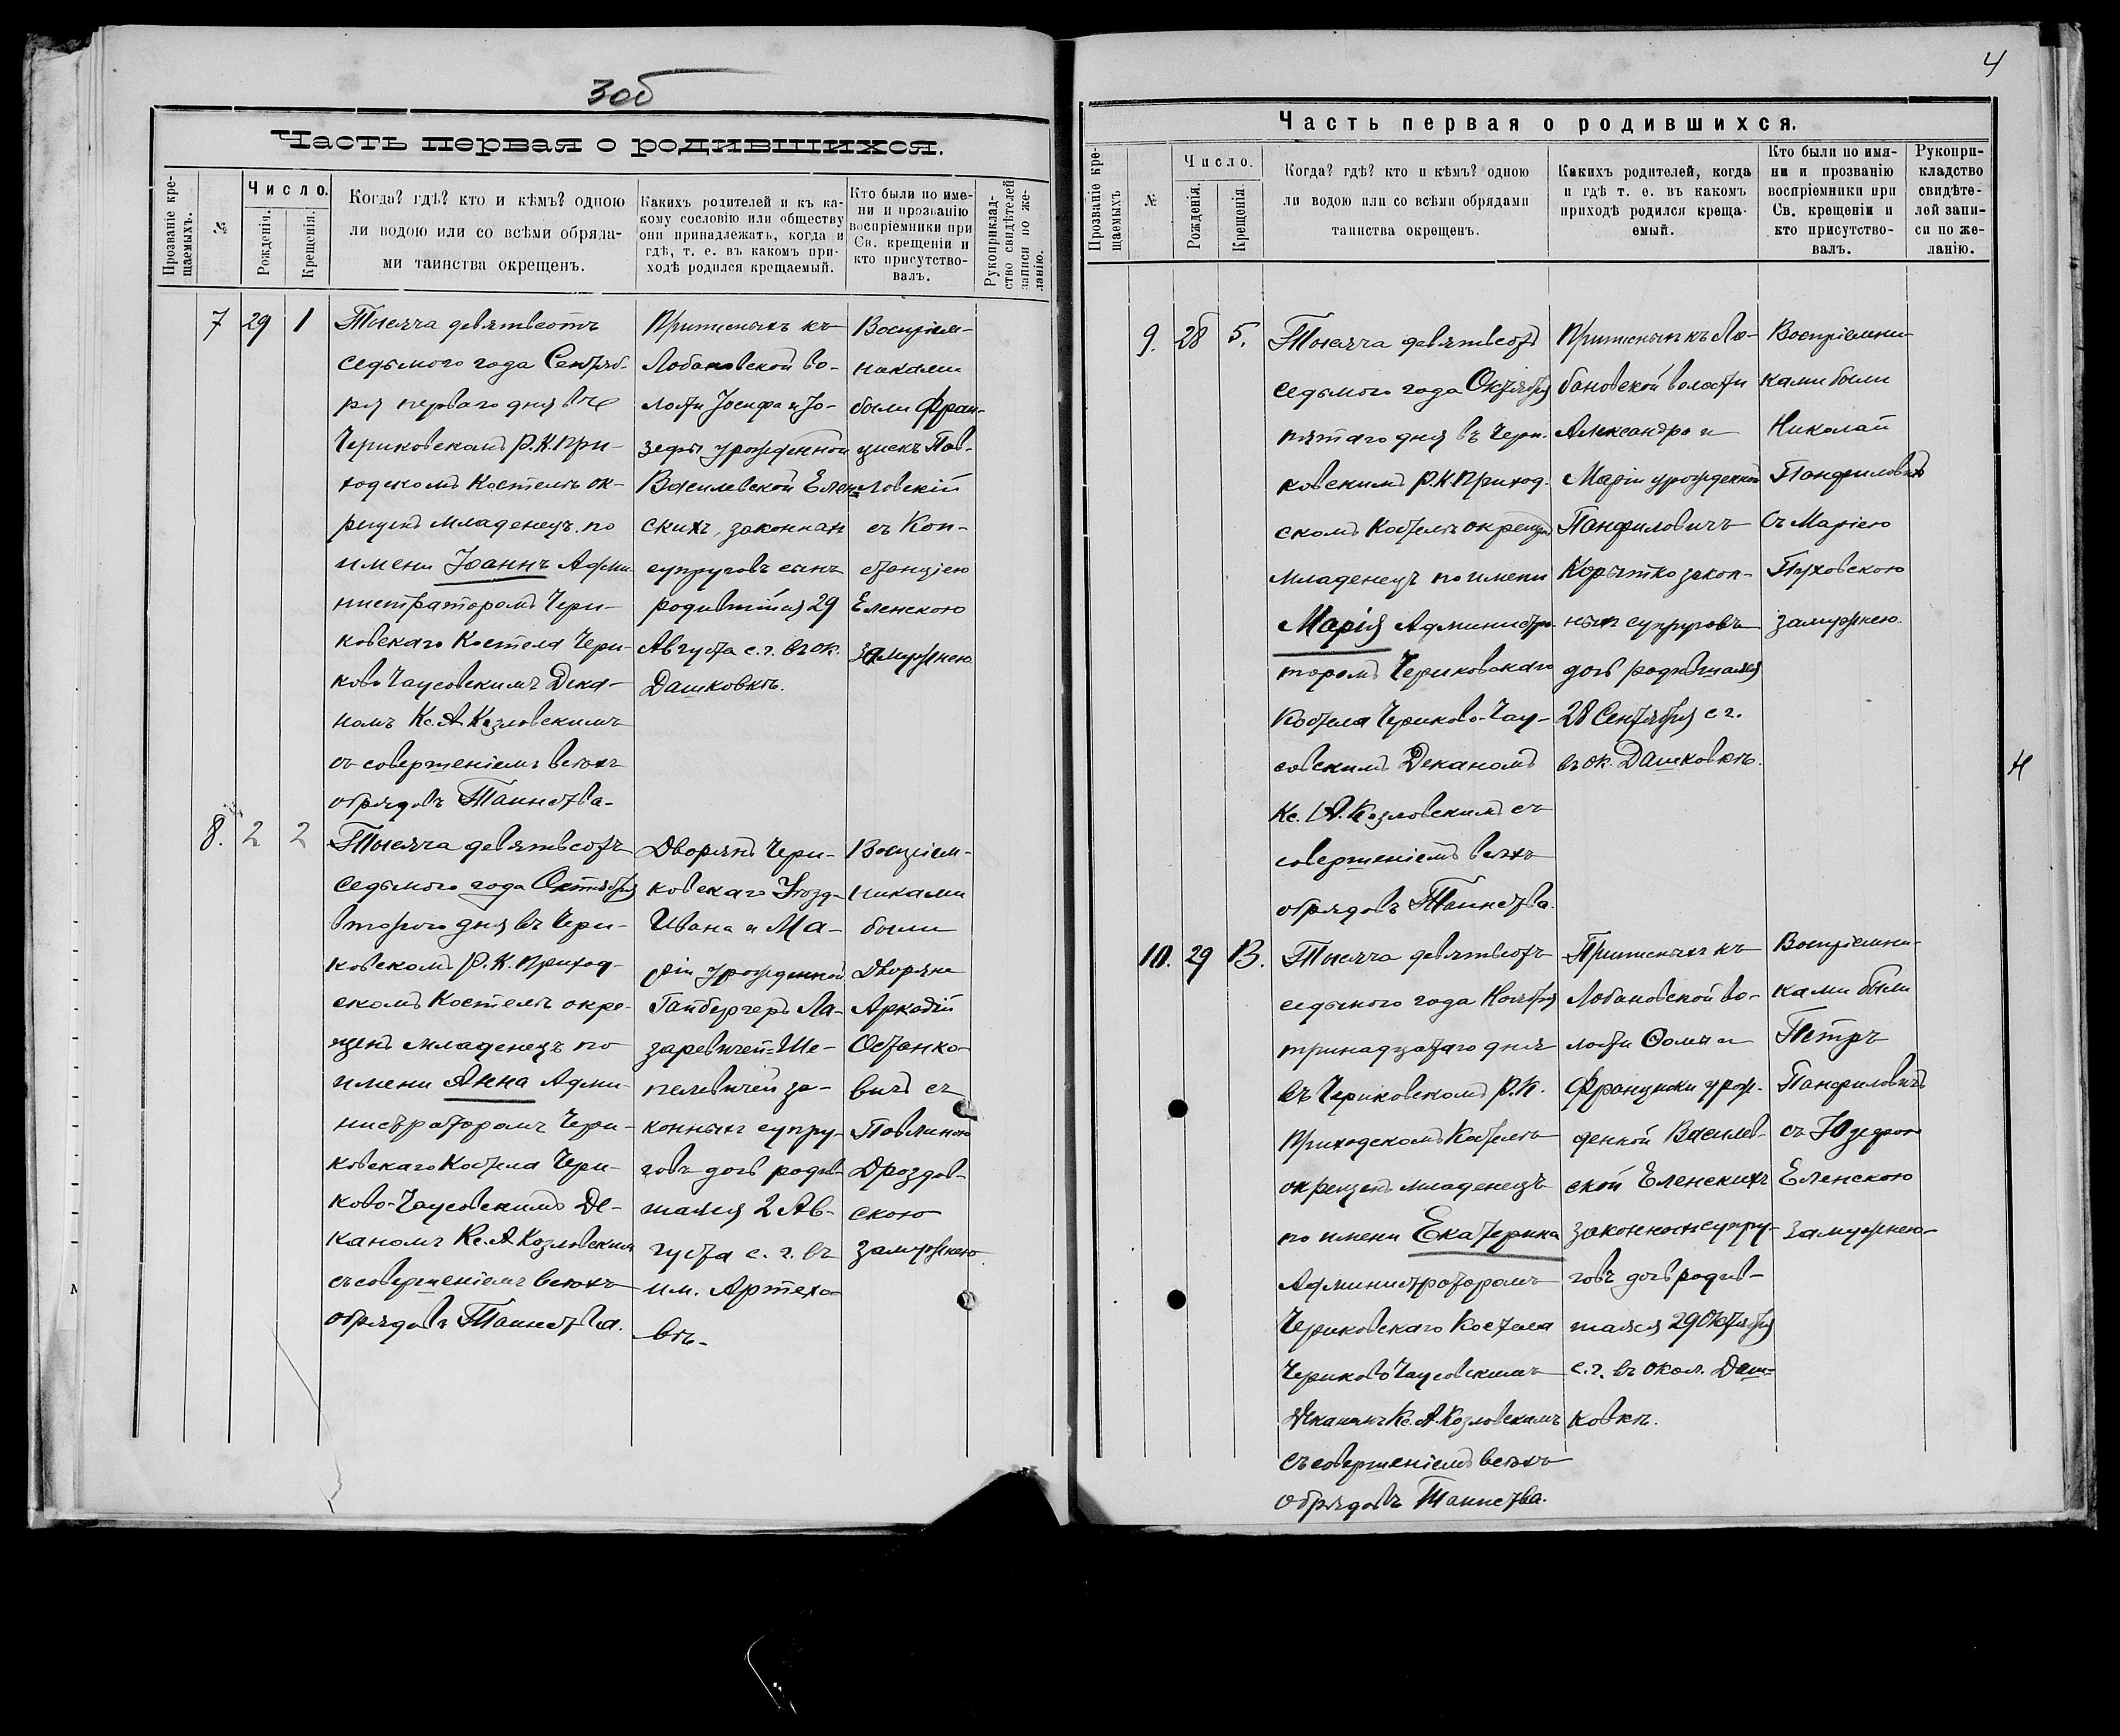 3об
Часть первая о родившихся.
Прозваніе кре-
щаемыхъ.
№
Число.
Рожденія.
Крещенія.
Когда? гдѣ? кто и кѣмъ? одною
ли водою или со всѣми обряда-
ми таинства окрещенъ.
Какихъ родителей и къ ка-
кому сословію или обществу
они принадлежатъ, когда и
гдѣ, т. е. въ какомъ при-
ходѣ родился крещаемый.
Кто были по име-
ни и прозванію
воспріемники при
Св. крещеніи и
кто присутство-
валъ.
Рукоприклад-
ство свидѣтелей
записи по же-
ланію.
7
29
1
Тысяча девятьсотъ
седьмого года Сентяб-
ря перваго дня въ
Чериковскомъ Р.К. При-
ходскомъ Костелѣ ок-
рещенъ младенецъ по
имени Іоаннъ Адми
нистраторомъ Чери-
ковскаго Костела Чери-
ково Чаусовскимъ Дека-
номъ Кс. А. Козловскимъ
съ совершеніемъ всѣхъ
обрядовъ Таинства.
Приписныхъ къ
Лобановской во-
лости Іосифа и Іо-
зефы урожденной
Василевской Елен-
скихъ, законныхъ
супруговъ сынъ
родившійся 29
Августа с. г. въ ок.
Дашковкѣ.
Воспріем-
никами
были Фран-
цискъ Пав-
ловскій
съ Кон-
станціею
Еленскою
замужнею
8.
2
2
Тысяча девятьсотъ
седьмого года Октября
второго дня въ Чери-
ковскомъ Р. К. Приход-
скомъ Костелѣ окре-
щенъ младенецъ по
имени Анна Адми-
нистраторомъ Чери-
ковскаго Костела Чери-
ково-Чаусовскимъ Де-
каномъ Кс. А Козловскимъ
съ совершеніемъ всѣхъ
обрядовъ Таинства.
Дворянъ Чери-
ковскаго Уѣзд-
Ивана и Ма-
ріи урожденной
Гамбергеръ Ла-
заревичей=Ше-
пелевичей за-
конныхъ супру-
говъ дочь родив-
шаяся 2 Ав-
густа с. г. въ
им. Артехо-
въ-
Воспріем-
никами
были
Дворяне
Аркадій
Останко-
вичъ съ
Павлиною
Дроздов-
скою
замужнею
4
Часть первая о родившихся.
Прозваніе кре-
щаемыхъ
№
Число.
Рожденія.
Крещенія.
Когда? гдѣ? кто и кѣмъ? одною
ли водою или со всѣми обрядами
таинства окрещенъ.
Какихъ родителей, когда
и гдѣ т. е. въ какомъ
приходѣ родился креща-
емый.
Кто были по имя-
ни и прозванію
воспріемники при
Св. крещеніи и
кто присутство-
валъ.
Рукопри-
кладство
свидѣте-
лей запи-
си по же-
ланію.
9.
28
5.
Тысяча девятьсотъ
седьмого года Октября
пятаго дня въ Чери-
ковскимъ Р.К. Приход-
скомъ Костелѣ окрещенъ
младенецъ по имени
Марія Администра-
торомъ Чериковскаго
Костела Чериково-Чау-
совскимъ Деканомъ
Кс. А. Козловскимъ съ
совершеніемъ всѣхъ
обрядовъ Таинства.
Приписныхъ къ Ло-
бановской волости
Александра и
Маріи урожденной
Панфиловичъ
Корытко закон-
ныхъ супруговъ
дочь родившаяся
28 Сентября с г.
въ ок. Дашковкѣ.
Воспріемни-
ками были
Николай
Панфиловичъ
съ Маріею
Пуховскою
замужнею.
10.
29
13.
Тысяча девятьсотъ
седьмого года Ноября
тринадцатаго дня
въ Чериковскомъ Р.К.
Приходскомъ Костелѣ
окрещенъ младенецъ
по имени Екатерина
Администраторомъ
Чериковскаго Костела
Чериково Чаусовскимъ
Деканомъ Кс. А. Козловскимъ
съ совершеніемъ всѣхъ
обрядовъ Таинства.
Приписныхъ къ
Лобановской во-
лости Ѳомы и
Франциски урож-
денной Василев-
ской Еленскихъ
законныхъ супру-
говъ дочь родив-
шаяся 29 Октября
с. г. въ окол. Даш-
ковкѣ.
Воспріемни-
ками были
Петръ
Панфиловичъ
съ Юзефою
Еленскою
замужнею